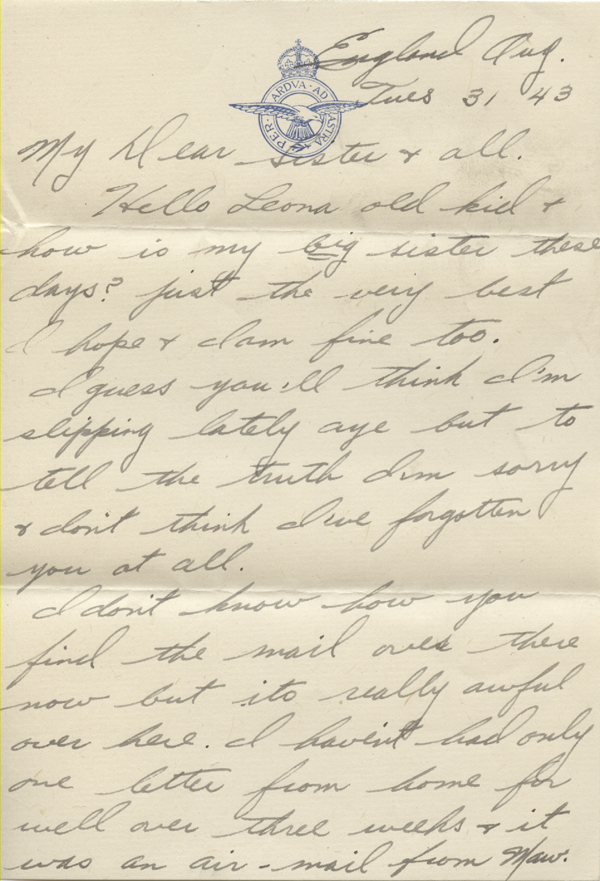 England Aug.
Tues 31 43
PER · ARDVA · AD · ASTRA
My Dear sister & all.
Hello Leona old kid &
how is my big sister these
days? just the very best
I hope & I am fine too.
I guess you'll think I'm
slipping lately aye but to
tell the truth I'm sorry
& don't think I've forgotten
you at all.
I don't know how you
find the mail over there
now but its really awful
over here. I haven't had only
one letter from home for
well over three weeks & it
was an air-mail from Maw.